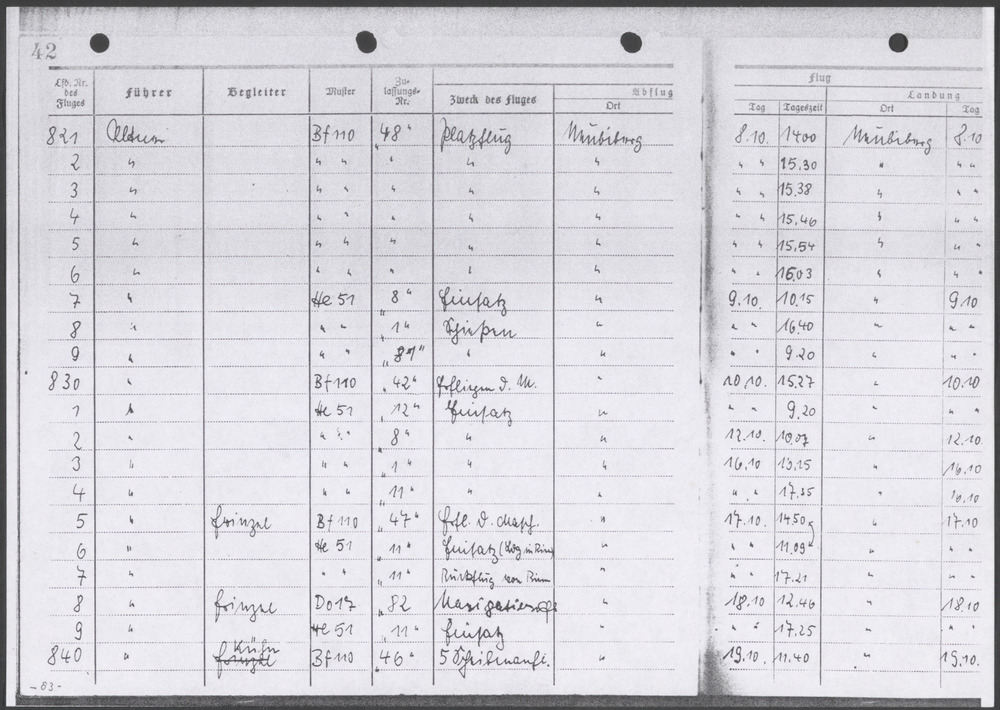 42
Lfd. Nr. des Fluges Führer Begleiter Muster Zu- lassungs- Nr. Zweck des Fluges Abflug Ort
Flug
Landung
Tag Tageszeit Ort Tag
821 Bf 110 „48“ Platzflug Neubiberg 8.10. 1400 Neubiberg 8.10
2 " " " " " " " " 15.30 " " "
3 " " " " " " " " 15.38 " " "
4 " " " " " " " " 15.46 " " "
5 " " " " " " " " 15.54 " " "
6 " " " " " " " " 16.03 " " "
7 " He 51 „8“ Einsatz " 9.10. 10.15 " 9.10
8 " " " „1“ Schießen " " " 16.40 " " "
9 " " " " " " " 9.20 " " "
830 " Bf 110 „42“ d. M. " 10.10. 15.27 " 10.10
1 " He 51 „12“ Einsatz " " " 9.20 " " "
2 " " " „8“ " " 12.10. 10.07 " 12.10
3 " " " „1“ " " 16.10 " 16.10
4 " " " „11“ " " " " 17.35 " 16.10
5 " Frinzel Bf 110 „47“ " 17.10. 14.50 " 17.10
6 " He 51 „11“ Einsatz " " " 11.09 " " "
7 " " " „11“ Rückflug von " " " 17.21 " " "
8 " Frinzel Do 17 „82 " 18.10 12.46 " 18.10
9 " He 51 „11“ Einsatz " " " 17.25 " " "
840 " Kühn Bf 110 „46“ 5 " 19.10. 11.40 " 19.10.
- 83 -